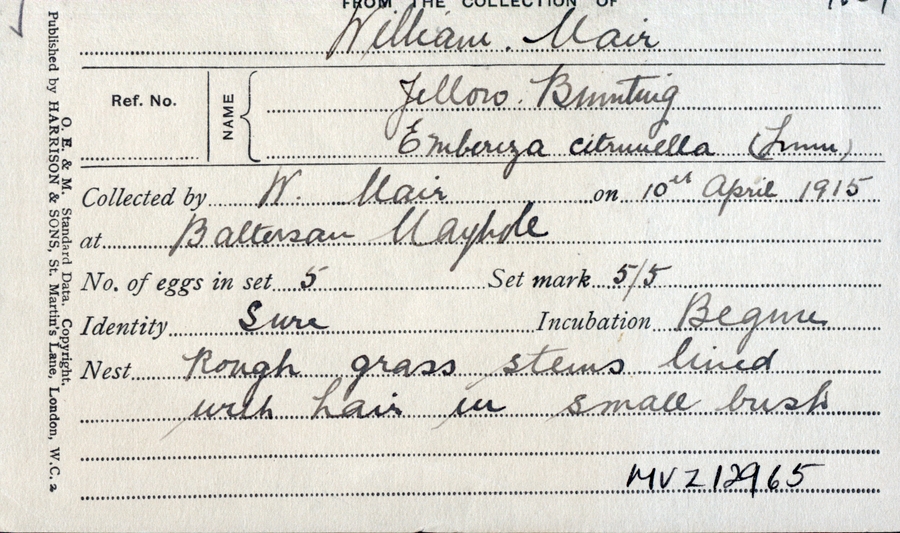 FROM THE COLLECTION OF
William. Mair
Ref. No.
NAME
Yellow. Bunting
Emberiza citrinella (Linn)
Collected by W. Mair on 10th April 1915
at Baltersan Maybole
No. of eggs in set 5 Set mark 5/5
Identity Sure Incubation Begun
Nest Rough grass stems lined
with hair in small bush
MVZ 12965
O. E. & M. Standard Data. Copyright.
Published by HARRISON & SONS, St. Martin's Lane, London, W.C. 2